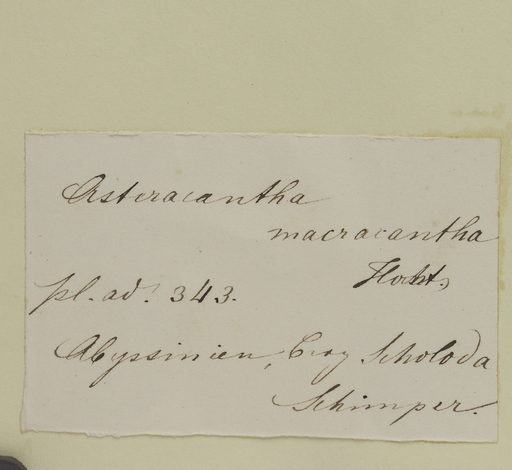 Asteracantha
macracantha
Hochst.
pl. ad. 343.
Abyssinien, Berg Scholoda
Schimper.